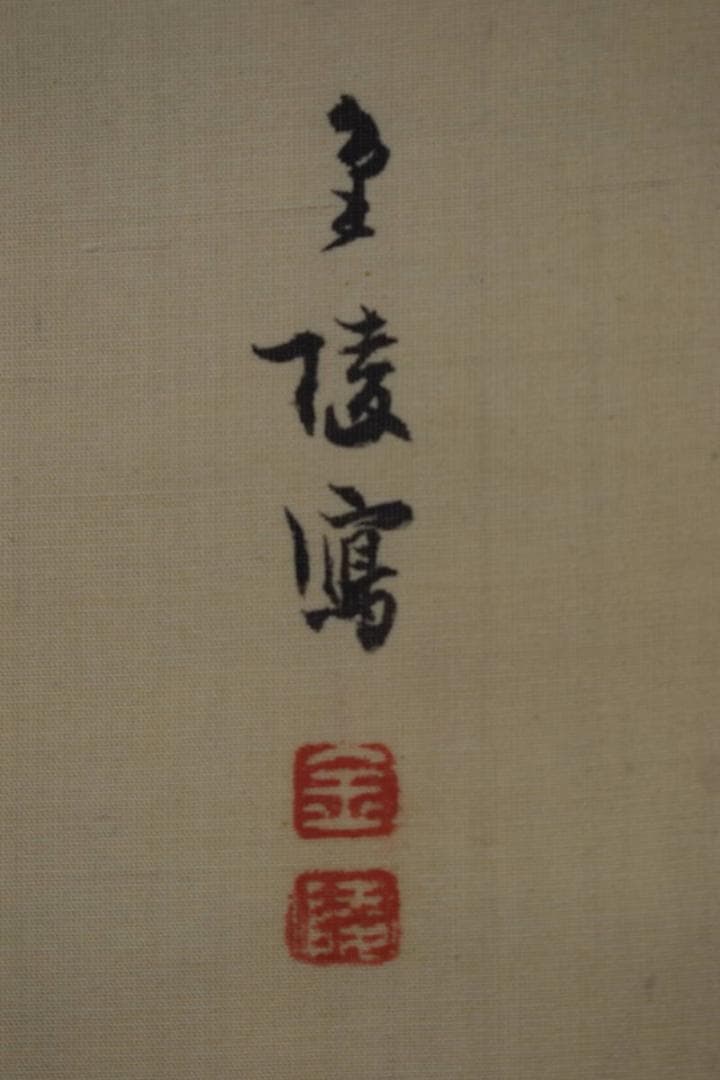 金陵寫
金
陵